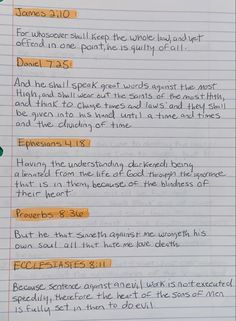 James 2:10
For whosoever shall keep the whole law, and yet
offend in one point, he is guilty of all.
Daniel 7:25
And he shall speak great words against the most
High, and shall wear out the saints of the most High,
and think to change times and laws: and they shall
be given into his hand until a time and times
and the dividing of time
Ephesians 4:18
Having the understanding darkened, being
alienated from the life of God through the ignorance
that is in them, because of the blindness of
their heart
Proverbs 8:36
But he that sinneth against me wrongeth his
own soul all that hate me love death
ECCLESIASTES 8:11
Because sentence against an evil work is not executed
speedily, therefore the heart of the sons of men
is fully set in them to do evil